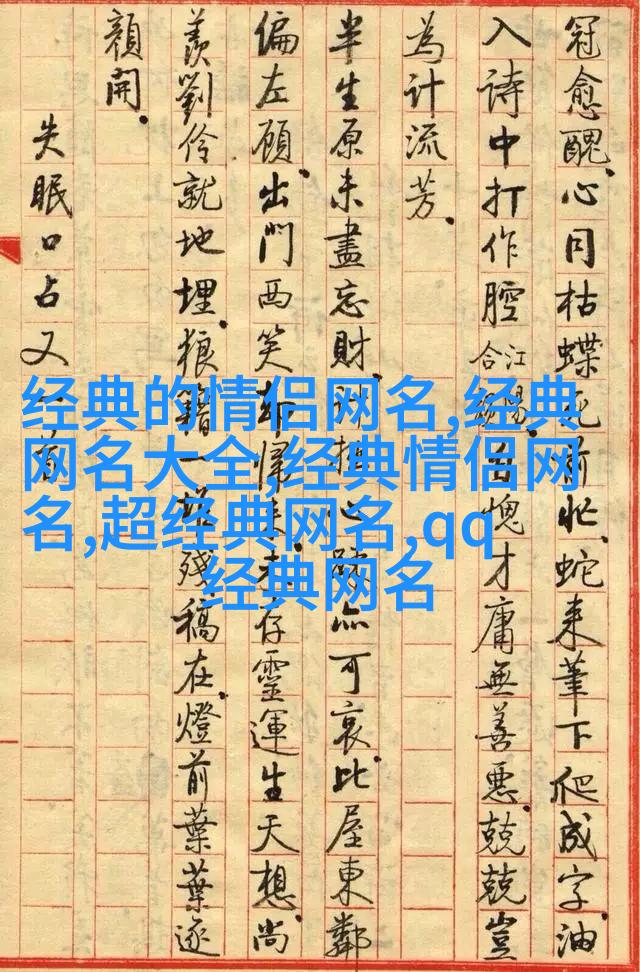 冠愈醜、心同枯蝶死前忙、蛇来筆下爬成字、油
入詩中打作腔江合陽。自愧才庸無善惡、兢兢豈
為計流芳。
半生原未盡忘財、心疎亦可哀。比屋東鄰
偏左顧、出門西笑却歸来。未存靈運生天想、尚
羨劉伶就地埋。狼籍一堆殘稿在、燈前葉葉逐
顏開。
失眠口占又一首
经典的情侣网名,经典
网名大全,经典情侣网
名,超经典网名,qq
经典网名